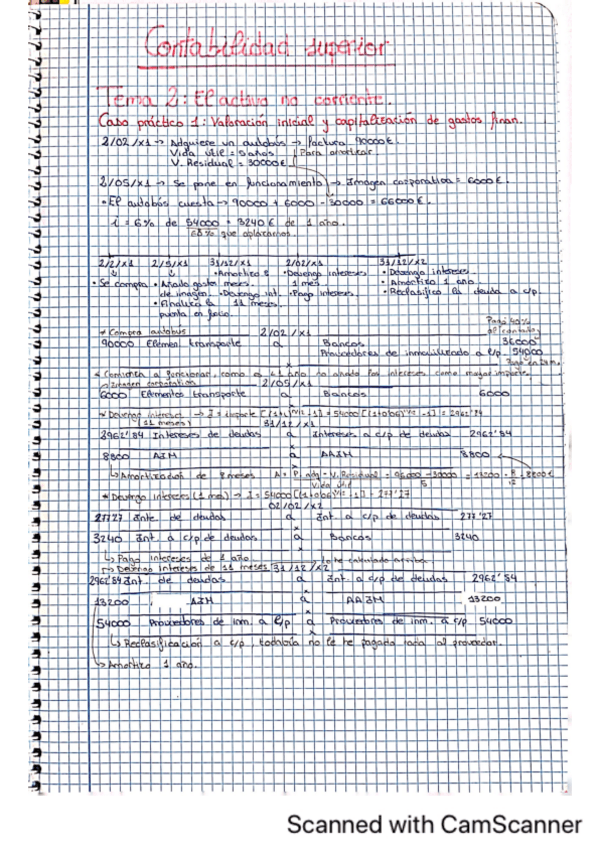 Contabilidad superior
Tema 2: El activo no corriente.
Caso práctico 1: Valoración inicial y capitalización de gastos finan.
2/02/x1 → Adquiere un autobús → factura 90000€.
Vida útil = 5 años
Para amortizar
V. Residual = 30000€
2/05/x1 → Se pone en funcionamiento → Imagen corporativa = 6000€.
• El autobús cuesta → 90000 + 6000 - 30000 = 66000€.
i = 6% de 54000 = 3240€ de 1 año.
60% que aplazamos.
2/2/x1 2/5/x1 31/12/x1 2/02/x2 31/12/x2
• Amortizo 8 • Devengo intereses • Devengo intereses
• Se compra • Añado gastos meses. 1 mes • Amortizo 1 año.
de imagen. • Devengo int. • Pago intereses. • Reclasifico la deuda a c/p.
11 meses.
puesta en func.
Pago 40%
al contado
* Compra autobús 2/02/x1
90000 Elemen. transporte a Bancos 36000
Proveedores de inmovilizado a l/p. 54000
* Comienza a funcionar, como a <1 año no añado los intereses como mayor importe.
→ Imagen corporativa 2/05/x1
6000 Elementos transporte a Bancos 6000
(11 meses) 31/12/x1
2962'84 Intereses de deudas a Intereses a c/p de deudas 2962'84
8800 AIM a AAIM 8800
↳ Amortización de 8 meses
Vida útil 5
02/02/x2
277'27 Inte. de deudas a Int. a c/p de deudas 277'27
3240 Int. a c/p de deudas a Bancos 3240
↳ Pago intereses de 1 año lo he calculado arriba.
↳ Devengo intereses de 11 meses 31/12/x2
2962'84 Int. de deudas a Int. a c/p de deudas 2962'84
13200 AIM a AAIM 13200
54000 Proveedores de inm. a l/p a Proveedores de inm. a c/p 54000
↳ Reclasificación a c/p, todavía no le he pagado nada al proveedor.
↳ Amortizo 1 año.
Scanned with CamScanner